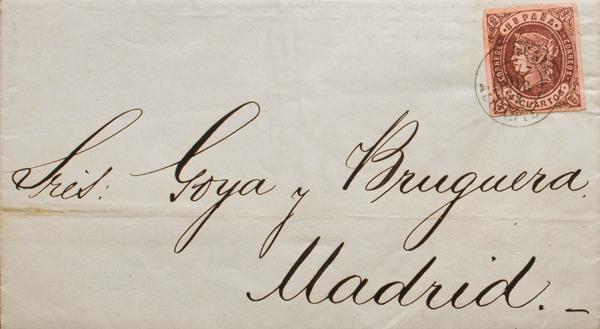 ESPAÑA
CORREOS
CORREOS
CUARTOS
Sres: Goya y Bruguera.
Madrid.—